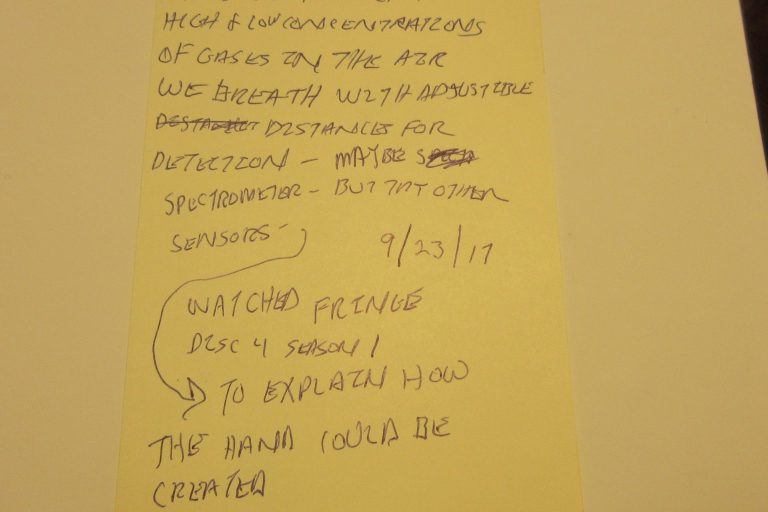 HIGH & LOW CONCENTRATIONS
OF GASES IN THE AIR
WE BREATH WITH ADJUSTIBLE
DISTANCES FOR
DETECTION - MAYBE
SPECTROMETER - BUT TRY OTHER
SENSORS -
9/23/17
WATCHED FRINGE
DISC 4 SEASON 1
TO EXPLAIN HOW
THE HAND COULD BE
CREATED